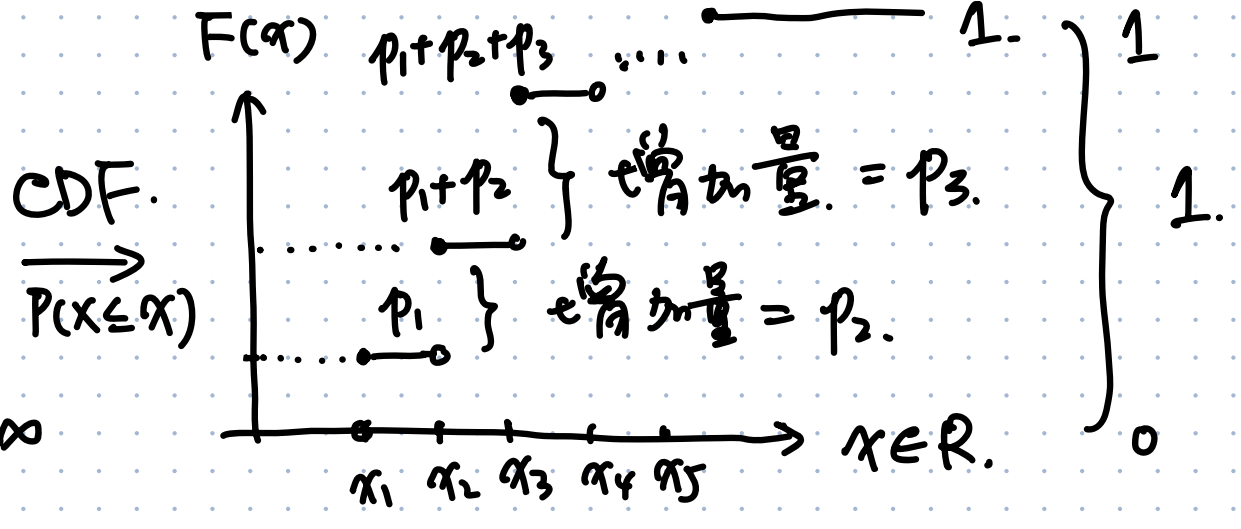 F(x)
p₁+p₂+p₃ ....
1.
1
CDF.
p₁+p₂
增加量. = p₃.
1.
P(X≤x)
p₁
增加量 = p₂.
∞
x₁ x₂ x₃ x₄ x₅
x∈R.
0